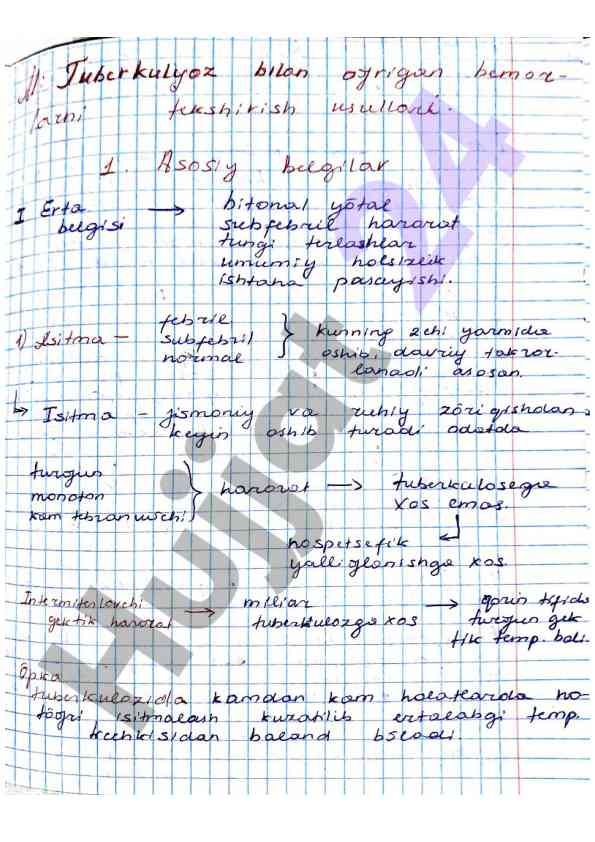 M: Tuberkulyoz bilan og'rigan bemor-
larni tekshirish usullari.
1. Asosiy belgilar
I Erta belgisi → bitonal yõtal
subfebril harorat
tungi terlashlar
umumiy holsizlik
ishtaha pasayishi.
1) Isitma – febril
subfebril
normal
} kunning 2chi yarmida
oshib, davriy takror-
lanadi asosan.
↳ Isitma – jismoniy va ruhiy zõriqishdan
keyin oshib turadi odatda
turgun
monoton
kam tebranuvchi
} harorat → tuberkulosega
xos emas.
nospetsefik
yalliglanishga xos.
Intermitirlovchi
gektik harorat → miliar
tuberkulozga xos → qorin tifida
turgun gek
tik temp. bõli.
Õpka
tuberkulozida kamdan kam holatlarda no-
tõgri isitmalash kuzatilib ertalabgi temp.
kechkisidan baland bõladi.
Hujjat 24